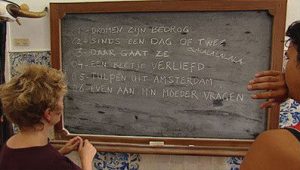 1 - DROMEN ZIJN BEDROG
2 - SINDS EEN DAG OF TWEE
SHALALALALA
3 - DAAR GAAT ZE
4 - EEN BEETJE VERLIEFD
5 - TULPEN UIT AMSTERDAM
6 - EVEN AAN M'N MOEDER VRAGEN